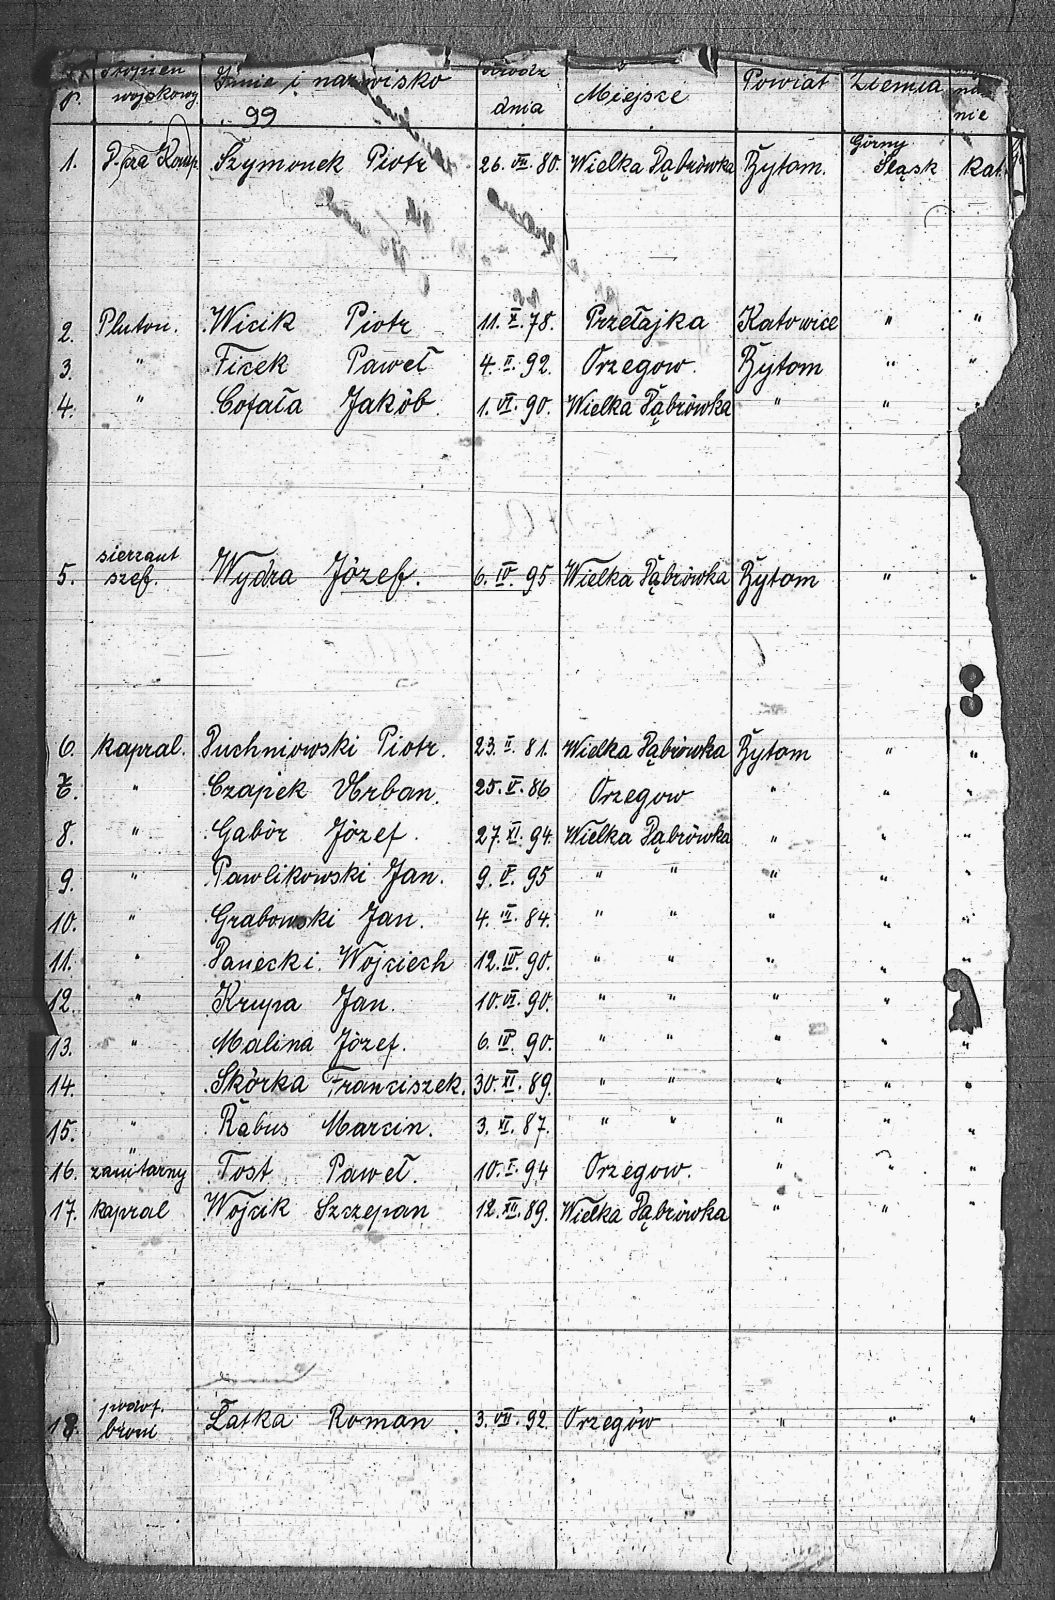 Stopień wojskowy Imię i nazwisko urodz. dnia Miejsce Powiat Ziemia
P. nie
99
1. D-ca Komp. Szymonek Piotr 26. VII. 80. Wielka Dąbrówka Bytom. Górny Śląsk Kat.
2. Pluton. Wicik Piotr 11. X. 78. Przełajka Katowice " "
3. " Ficek Paweł 4. II. 92. Orzegow. Bytom " "
4. " Cofała Jakób 1. VI. 90. Wielka Dąbrówka " " "
5. sierzant szef. Wydra Józef. 6. IV. 95 Wielka Dąbrówka Bytom " "
6. kapral. Puchniowski Piotr. 23. II. 81. Wielka Dąbrówka Bytom " "
7. " Czapek Urban. 25. V. 86 Orzegow " " "
8. " Gabór Józef. 27. XI. 94. Wielka Dąbrówka " " "
9. " Pawlikowski Jan. 9. V. 95 " " " " "
10. " Grabowski Jan. 4. III. 84. " " " " "
11. " Panecki Wojciech 12. IV. 90. " " " " "
12. " Krupa Jan. 10. VI. 90. " " " " "
13. " Malina Józef. 6. IV. 90. " " " " "
14. " Skórka Franciszek. 30. XI. 89. " " " " "
15. " Rabus Marcin. 3. XI. 87. " " " " "
16. " zanitarny Tost Paweł. 10. I. 94 Orzegow. " " "
17. kapral Wojcik Szczepan 12. XII. 89. Wielka Dąbrówka " " "
18. podof. broni Łatka Roman 3. VII. 92. Orzegów " " "